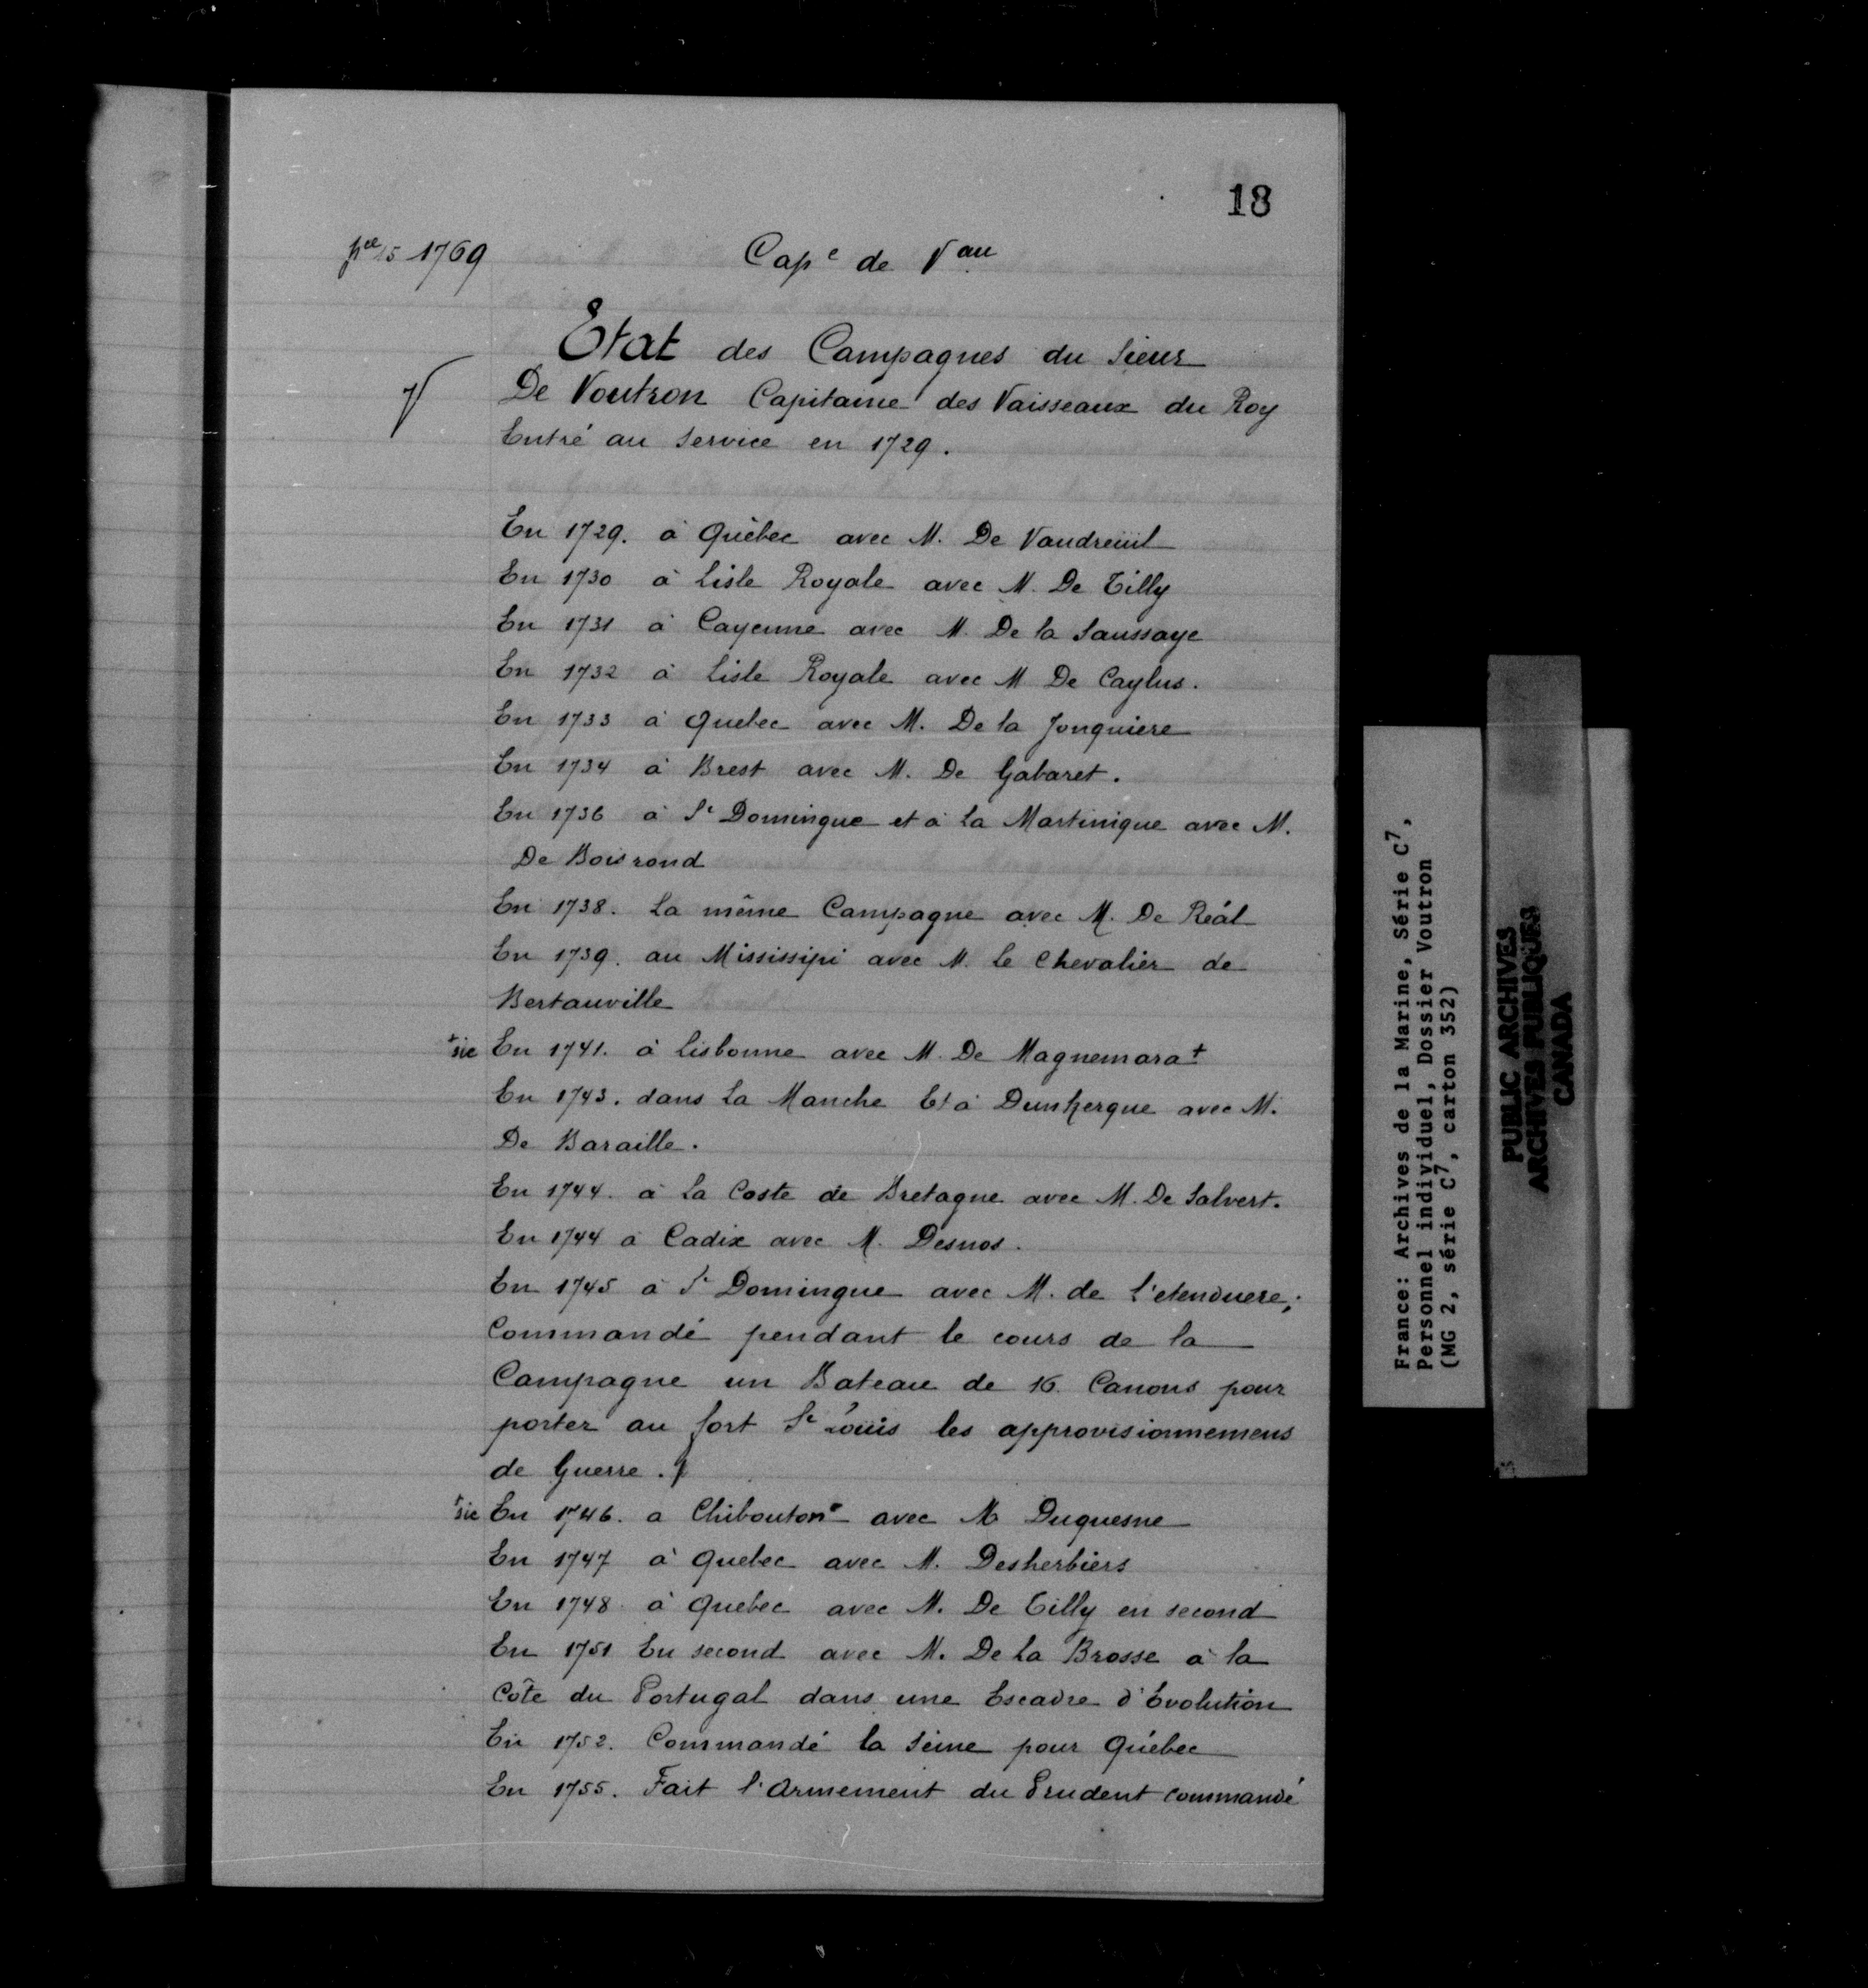 18
pce 15 1769
Cape de Vau
Etat des Campagnes du Sieur
De Voutron Capitaine des Vaisseaux du Roy
Entré au Service en 1729.
En 1729. à Québec avec M. De Vaudreüil
En 1730 à Lisle Royale avec M. De Tilly
En 1731 à Cayenne avec M. De la Saussaye
En 1732 à Lisle Royale avec M De Caylus.
En 1733 à Quebec avec M. De la Jonquiere
En 1734 à Brest avec M. De Gabaret.
En 1736 à St Domingue et à la Martinique avec M.
De Boisrond
En 1738. La même Campagne avec M. De Réal
En 1739. au Mississipi avec M. Le Chevalier de
Bertauville
+sic En 1741. à Lisbonne avec M. De Magnemara+
En 1743. dans La Manche Et à Dunkerque avec M.
De Baraille.
En 1744. à La Coste de Bretagne avec M. De Salvert.
En 1744 à Cadix avec M. Desnos.
En 1745 à St Domingue avec M. de l'etenduere;
Commandé pendant le cours de la
Campagne un Bateau de 16 Canons pour
porter au fort St Loüis les approvisionnemens
de Guerre.
+sic En 1746. a Chibouton+ avec M Duquesne
En 1747 à Quebec avec M. Desherbiers
En 1748 à Quebec avec M. De Tilly en second
En 1751 En second avec M. De La Brosse à la
Côte du Portugal dans une Escadre d'Evolution
En 1752. Commandé la Seine pour Québec
En 1755. Fait l'Armement du Prudent commandé
France: Archives de la Marine, Série C7,
Personnel individuel, Dossier Voutron
(MG 2, série C7, carton 352)
PUBLIC ARCHIVES
ARCHIVES PUBLIQUES
CANADA